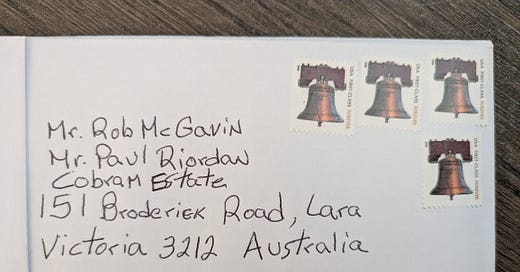 USA FIRST-CLASS FOREVER
USA FIRST-CLASS FOREVER
USA FIRST-CLASS FOREVER
USA FIRST-CLASS FOREVER
Mr. Rob McGavin
Mr. Paul Riordan
Cobram Estate
151 Broderick Road, Lara
Victoria 3212 Australia